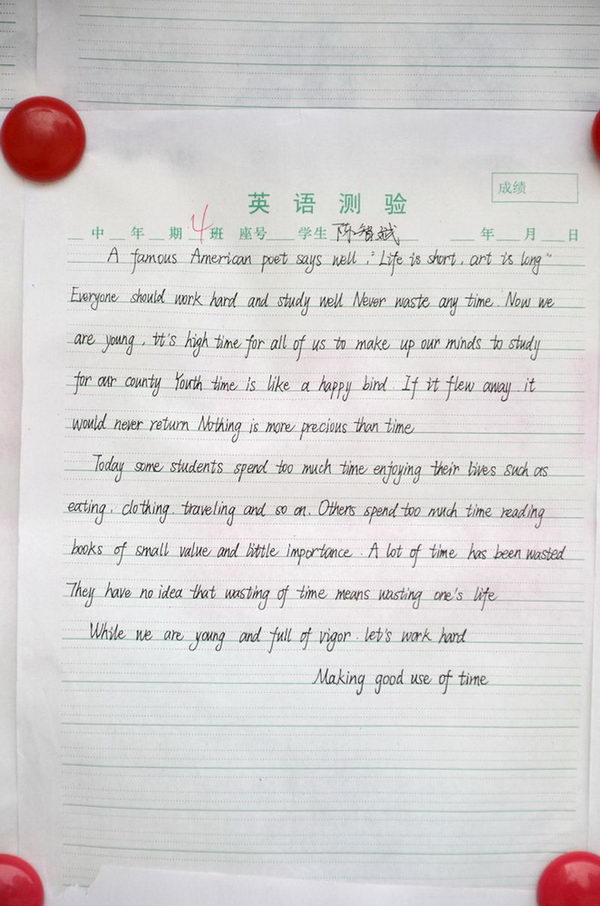 成绩
英语测验
中__年__期 4 班 座号___学生 陈智斌 __年__月__日
A famous American poet says well, "Life is short, art is long"
Everyone should work hard and study well Never waste any time. Now we
are young, It's high time for all of us to make up our minds to study
for our county Youth time is like a happy bird. If it flew away, it
would never return Nothing is more precious than time
Today some students spend too much time enjoying their lives such as
eating, clothing, traveling and so on. Others spend too much time reading
books of small value and little importance. A lot of time has been wasted
They have no idea that wasting of time means wasting one's life
While we are young and full of vigor, let's work hard
Making good use of time